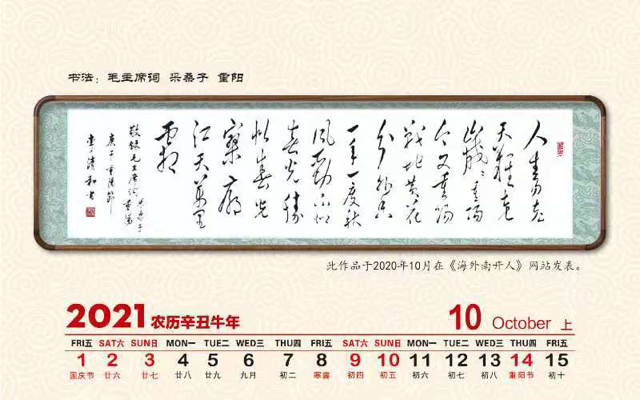 书法：毛主席词 采桑子 重阳
人生易老
天難老
歲歲重陽
今又重陽
戰地黄花
分外香
一年一度秋
風勁不似
春光勝
似春光
寥廓
江天萬里
霜
敬録毛主席词采桑子重陽
庚子重陽節
清和书
此作品于2020年10月在《海外南开人》网站发表。
2021 农历辛丑牛年 10 October 上
FRI五 SAT六 SUN日 MON一 TUE二 WED三 THU四 FRI五 SAT六 SUN日 MON一 TUE二 WED三 THU四 FRI五
1 2 3 4 5 6 7 8 9 10 11 12 13 14 15
国庆节 廿六 廿七 廿八 廿九 九月 初二 寒露 初四 初五 初六 初七 初八 重阳节 初十